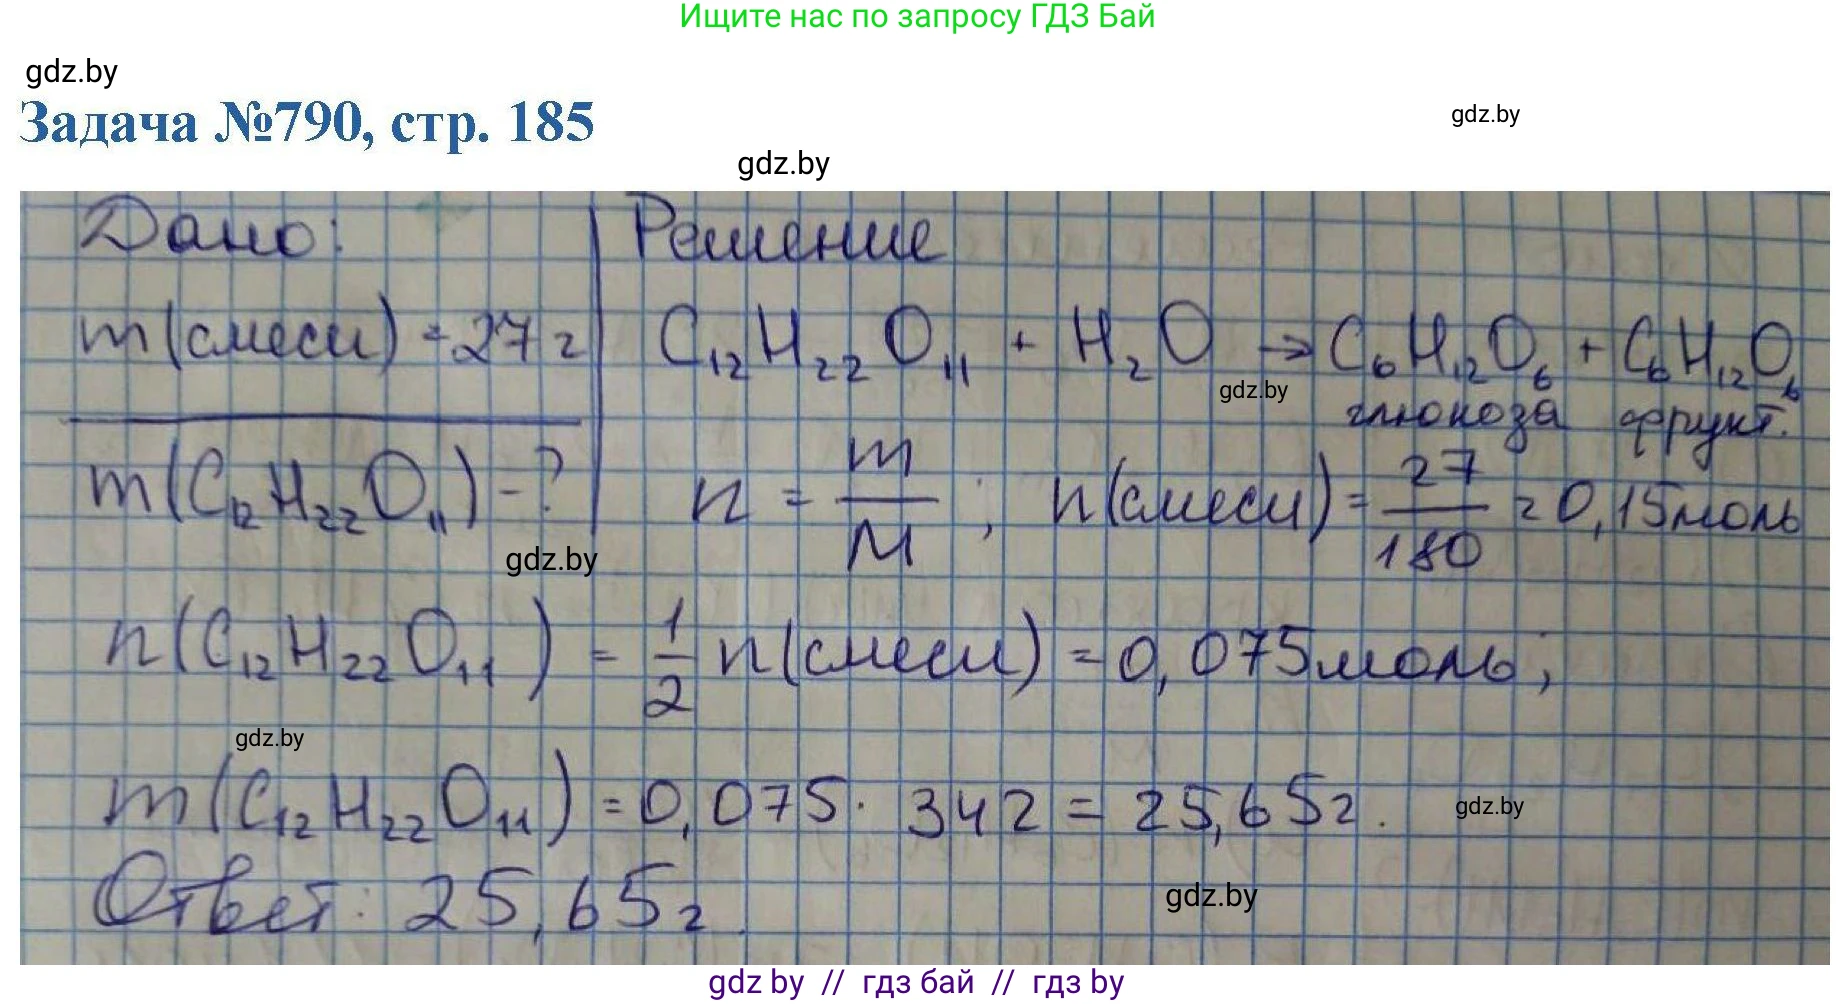 Ищите нас по запросу ГДЗ Бай
gdz.by
Задача №790, стр. 185
gdz.by
gdz.by
Дано:
Решение
m(смеси) = 27 г
C₁₂H₂₂O₁₁ + H₂O → C₆H₁₂O₆ + C₆H₁₂O₆
gdz.by
глюкоза фрукт.
m(C₁₂H₂₂O₁₁) - ?
n = m/M ; n(смеси) = 27/180 = 0,15моль
gdz.by
n(C₁₂H₂₂O₁₁) = 1/2 n(смеси) = 0,075моль;
gdz.by
m(C₁₂H₂₂O₁₁) = 0,075 · 342 = 25,65г.
gdz.by
Ответ: 25,65г.
gdz.by
gdz by // гдз бай // гдз by